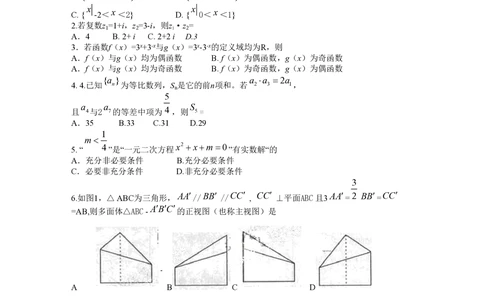 C. {x|-2< x <2} D. {x|0< x <1}
2.若复数z₁=1+i，z₂=3-i，则z₁·z₂=
A．4 B. 2+ i C. 2+2 i D.3
3．若函数f（x）=3ˣ+3⁻ˣ与g（x）=3ˣ-3⁻ˣ的定义域均为R，则
A．f（x）与g（x）均为偶函数 B. f（x）为偶函数，g（x）为奇函数
A．f（x）与g（x）均为奇函数 B. f（x）为奇函数，g（x）为偶函数
4. 4.已知{aₙ}为等比数列，Sₙ是它的前n项和。若 a₂·a₃ = 2a₁，
且a₄与2a₇的等差中项为5/4，则S₅=
A．35 B.33 C.31 D.29
5. “m<1/4”是“一元二次方程x²+x+m=0”有实数解“的
A．充分非必要条件 B.充分必要条件
C．必要非充分条件 D.非充分必要条件
6.如图1，△ ABC为三角形，AA′//BB′ //CC′ , CC′ ⊥平面ABC 且3AA′=3/2 BB′=CC′
=AB,则多面体△ABC -A′B′C′的正视图（也称主视图）是
A B C D